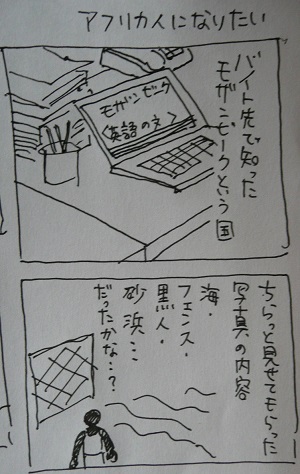 アフリカ人になりたい
バイト先で知った
モザンビークという国
モザンビーク
〈英語の文〉
ちらっと見せてもらった
写真の内容
海・
フェンス・
黒人・
砂浜…
だったかな…?